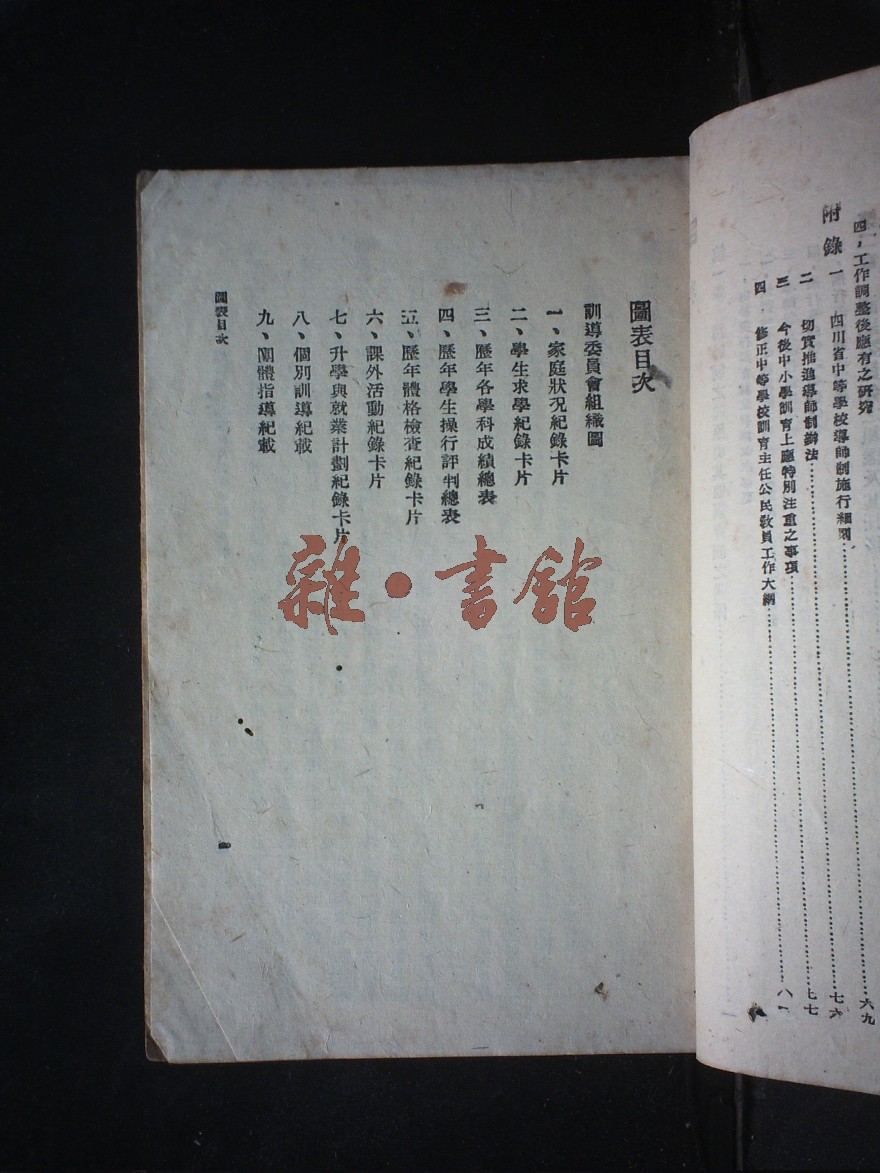 四，工作調整後應有之研究……六九
附錄
一 四川省中等學校導師制施行細則……七六
二 切實推進導師制辦法……七七
三 今後中小學訓育上應特別注重之事項……八一
四 修正中等學校訓育主任公民教員工作大綱……
圖表目次
訓導委員會組織圖
一、家庭狀況紀錄卡片
二、學生求學紀錄卡片
三、歷年各學科成績總表
四、歷年學生操行評判總表
五、歷年體格檢查紀錄卡片
六、課外活動紀錄卡片
七、升學與就業計劃紀錄卡片
八、個別訓導紀載
九、團體指導紀載
圖表目次
雜·書館